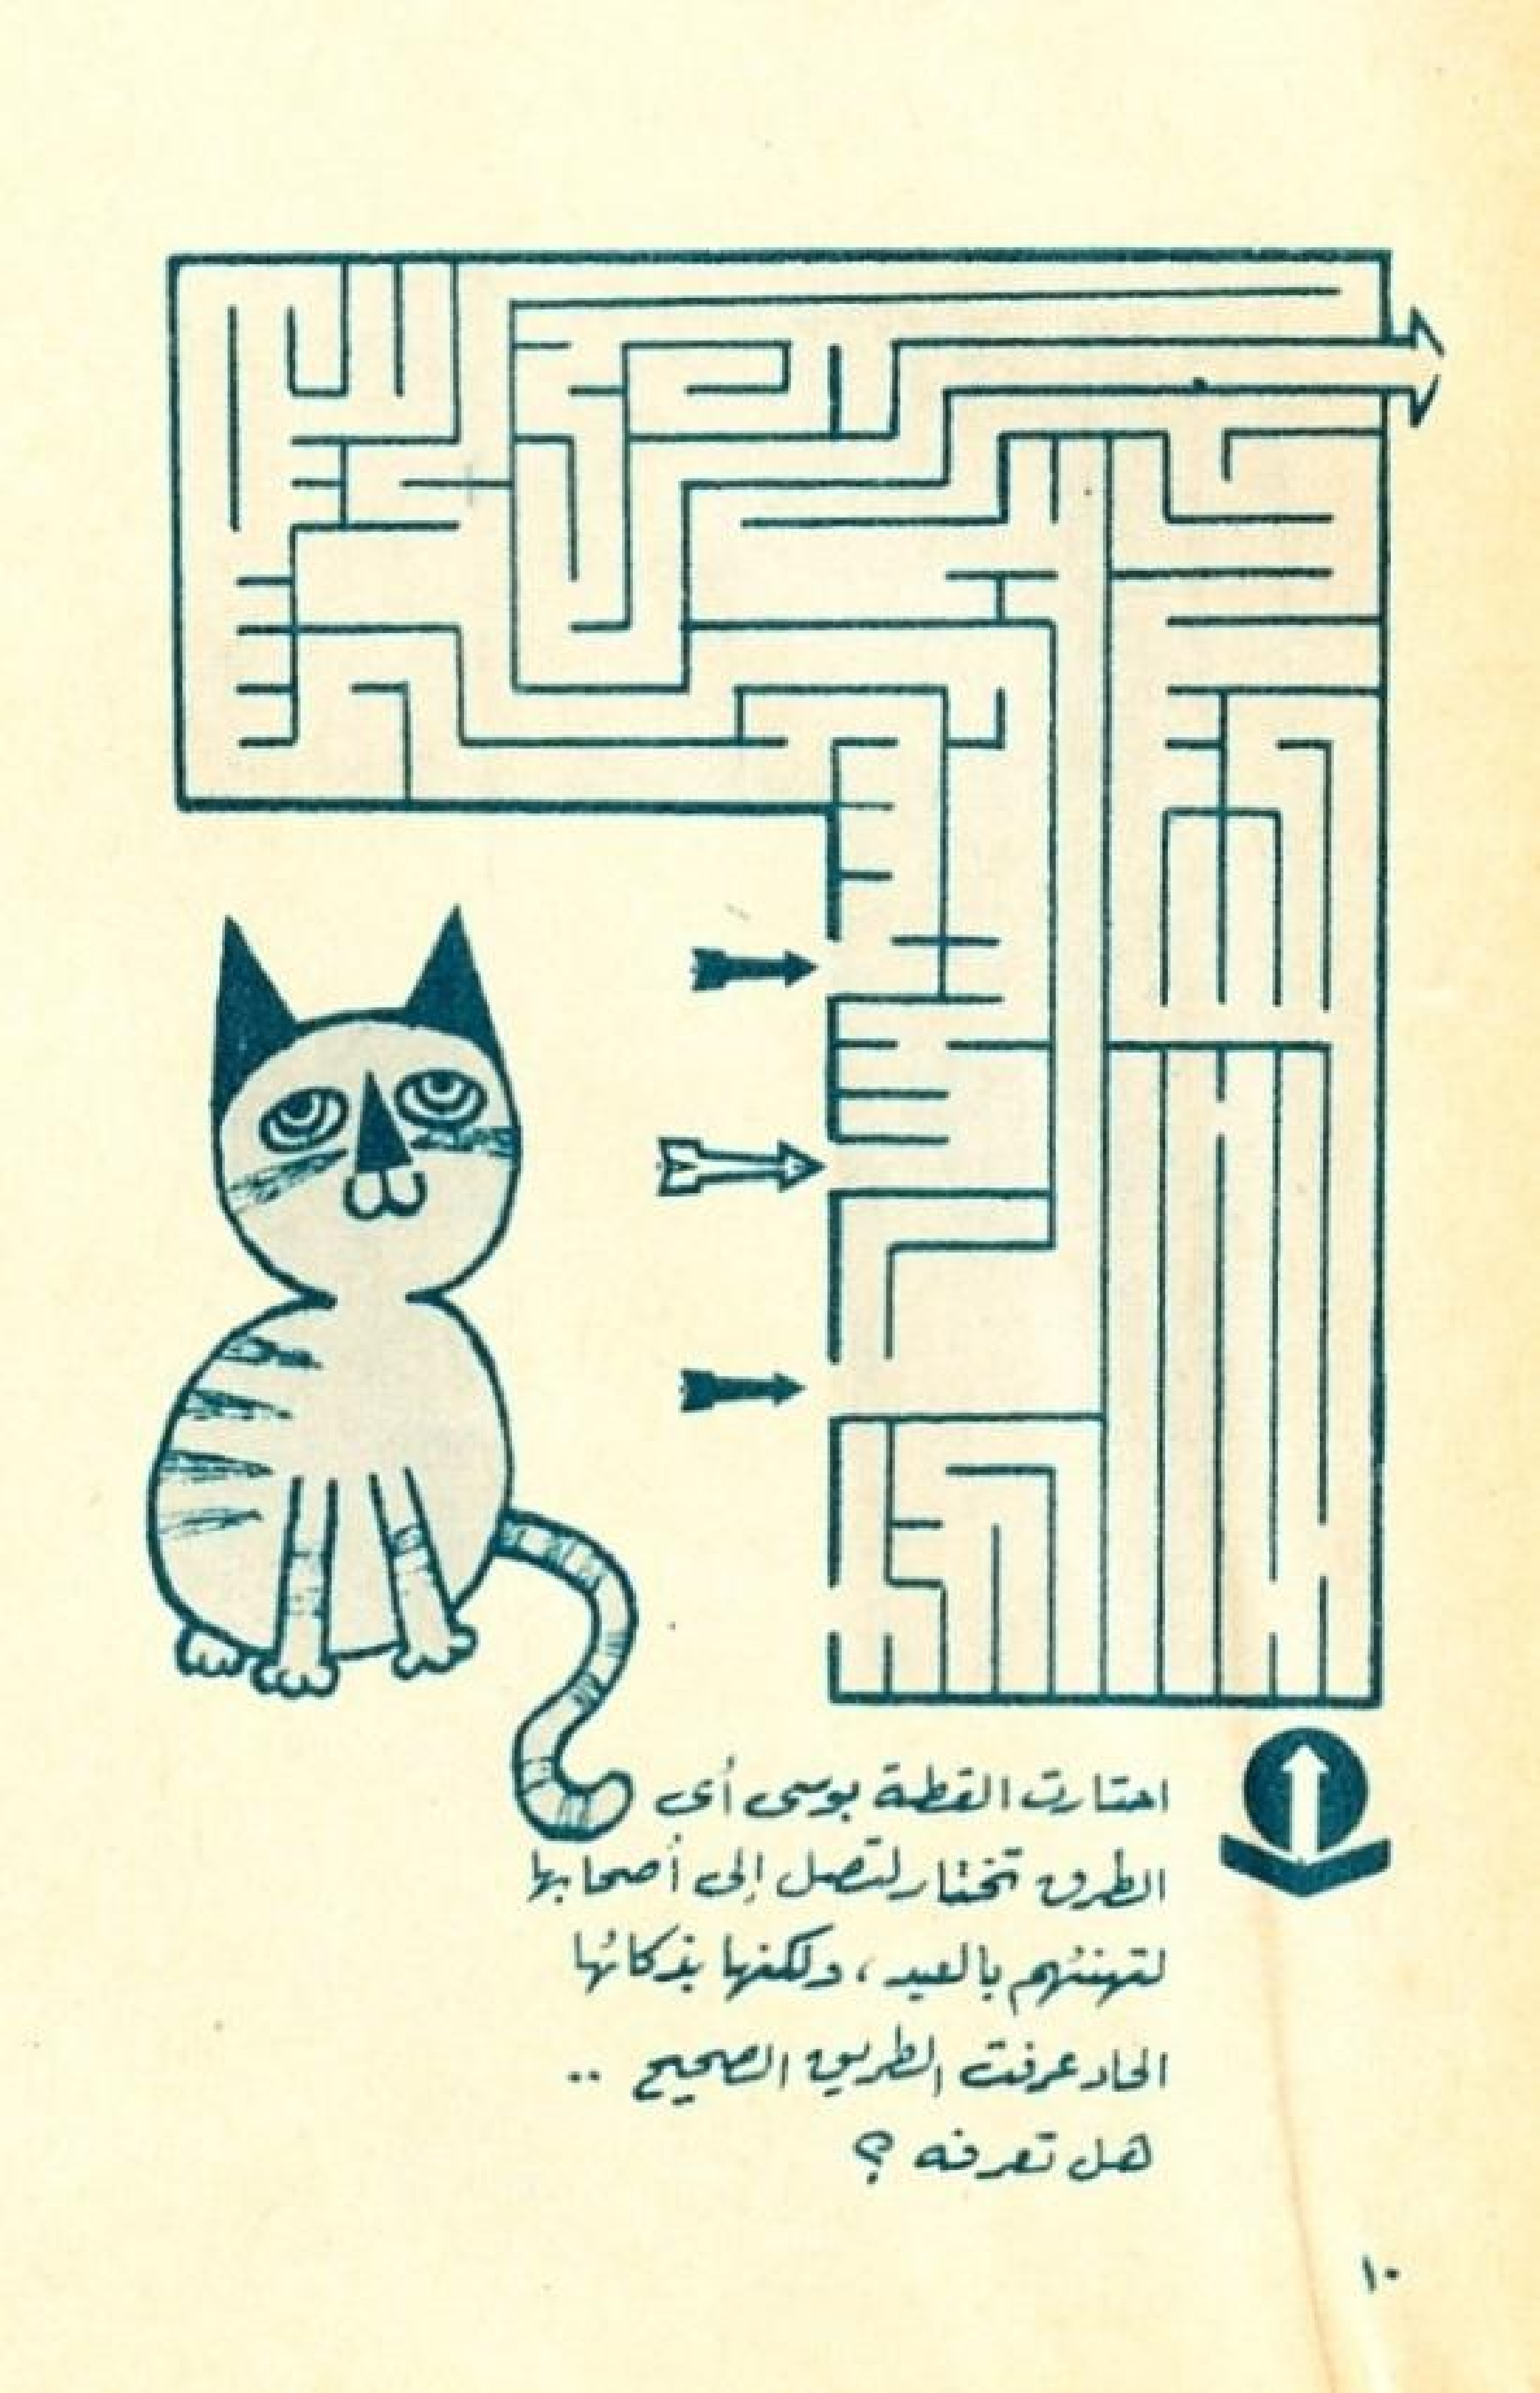 احتارت القطة بوسى أى
الطرق تختار لتصل إلى أصحابها
لتهنئهم بالعيد ، ولكنها بذكائها
الحاد عرفت الطريق الصحيح ..
هل تعرفه ؟
١٠